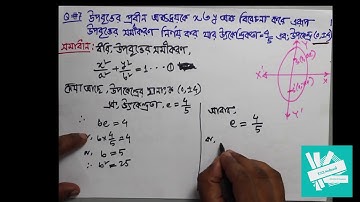 উপবৃত্তের প্রধান অক্ষদ্বয়কে x ও y অক্ষ বিবেচনা করে এরূপ
উপবৃত্তের সমীকরণ নির্ণয় কর যার উৎকেন্দ্রিকতা = 4/5 এবং উপকেন্দ্র (0, ±4)
সমাধান: ধরি, উপবৃত্তের সমীকরণ,
x²/a² + y²/b² = 1 ... ①
দেয়া আছে, উপকেন্দ্রের স্থানাংক (0, ±4)
এবং উৎকেন্দ্রিকতা, e = 4/5
∴ be = 4
বা, b × 4/5 = 4
বা, b = 5
∴ b² = 25
আবার,
e = 4/5
বা,
X'
X
Y'